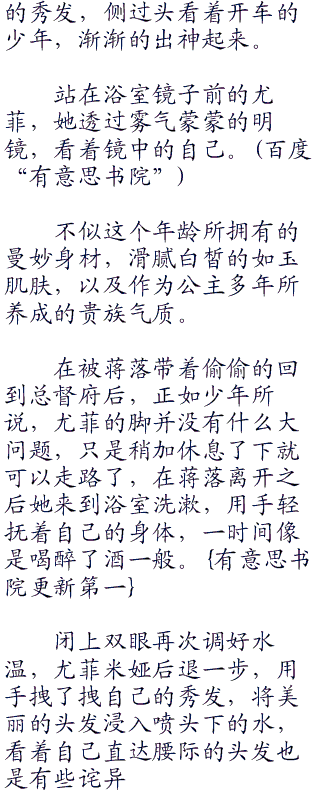 的秀发，侧过头看着开车的
少年，渐渐的出神起来。
站在浴室镜子前的尤
菲，她透过雾气蒙蒙的明
镜，看着镜中的自己。(百度
“有意思书院”)
不似这个年龄所拥有的
曼妙身材，滑腻白皙的如玉
肌肤，以及作为公主多年所
养成的贵族气质。
在被蒋落带着偷偷的回
到总督府后，正如少年所
说，尤菲的脚并没有什么大
问题，只是稍加休息了下就
可以走路了，在蒋落离开之
后她来到浴室洗漱，用手轻
抚着自己的身体，一时间像
是喝醉了酒一般。{有意思书
院更新第一}
闭上双眼再次调好水
温，尤菲米娅后退一步，用
手拽了拽自己的秀发，将美
丽的头发浸入喷头下的水，
看着自己直达腰际的头发也
是有些诧异